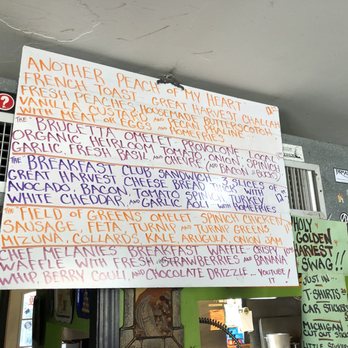 ANOTHER PEACH of MY HEART
FRENCH TOAST GREAT HARVEST CHALLAH
FRESH PEACHES HOUSEMADE BUTTERSCOTCH
VANILLA CUSTARD and PECAN PRALINE
WITH MEAT OR EGGS and HOMEFRIES
THE BRUCETTA OMELET PROVOLONE LOCAL
ORGANIC HEIRLOOM TOMATO ONION SPINACH
GARLIC FRESH BASIL and CHEVRE
THE BREAKFAST CLUB SANDWICH SLICES of
GREAT HARVEST CHEESE BREAD
AVOCADO, BACON, TOMATO SPINACH TURKEY,
WHITE CHEDDAR, and GARLIC AIOLI WITH HOMEFRIES
THE FIELD OF GREENS OMELET SPINICH CHICKEN
SAUSAGE, FETA, TURNIP and TURNIP GREENS
MIZUNA, COLLARDS KALE ARUGULA, ONION JAM
CHEF MELANIES BREAKFAST WAFFLE CRISPY
WAFFLE WITH FRESH STRAWBERRIES and BANANA
WHIP BERRY COULI, and CHOCOLATE DRIZZLE
HOLY
GOLDEN
HARVEST
SWAG!!
JUST IN
T-SHIRTS
CAR STICKERS
MICHIGAN
CUT OUT
LITTLE STICKERS